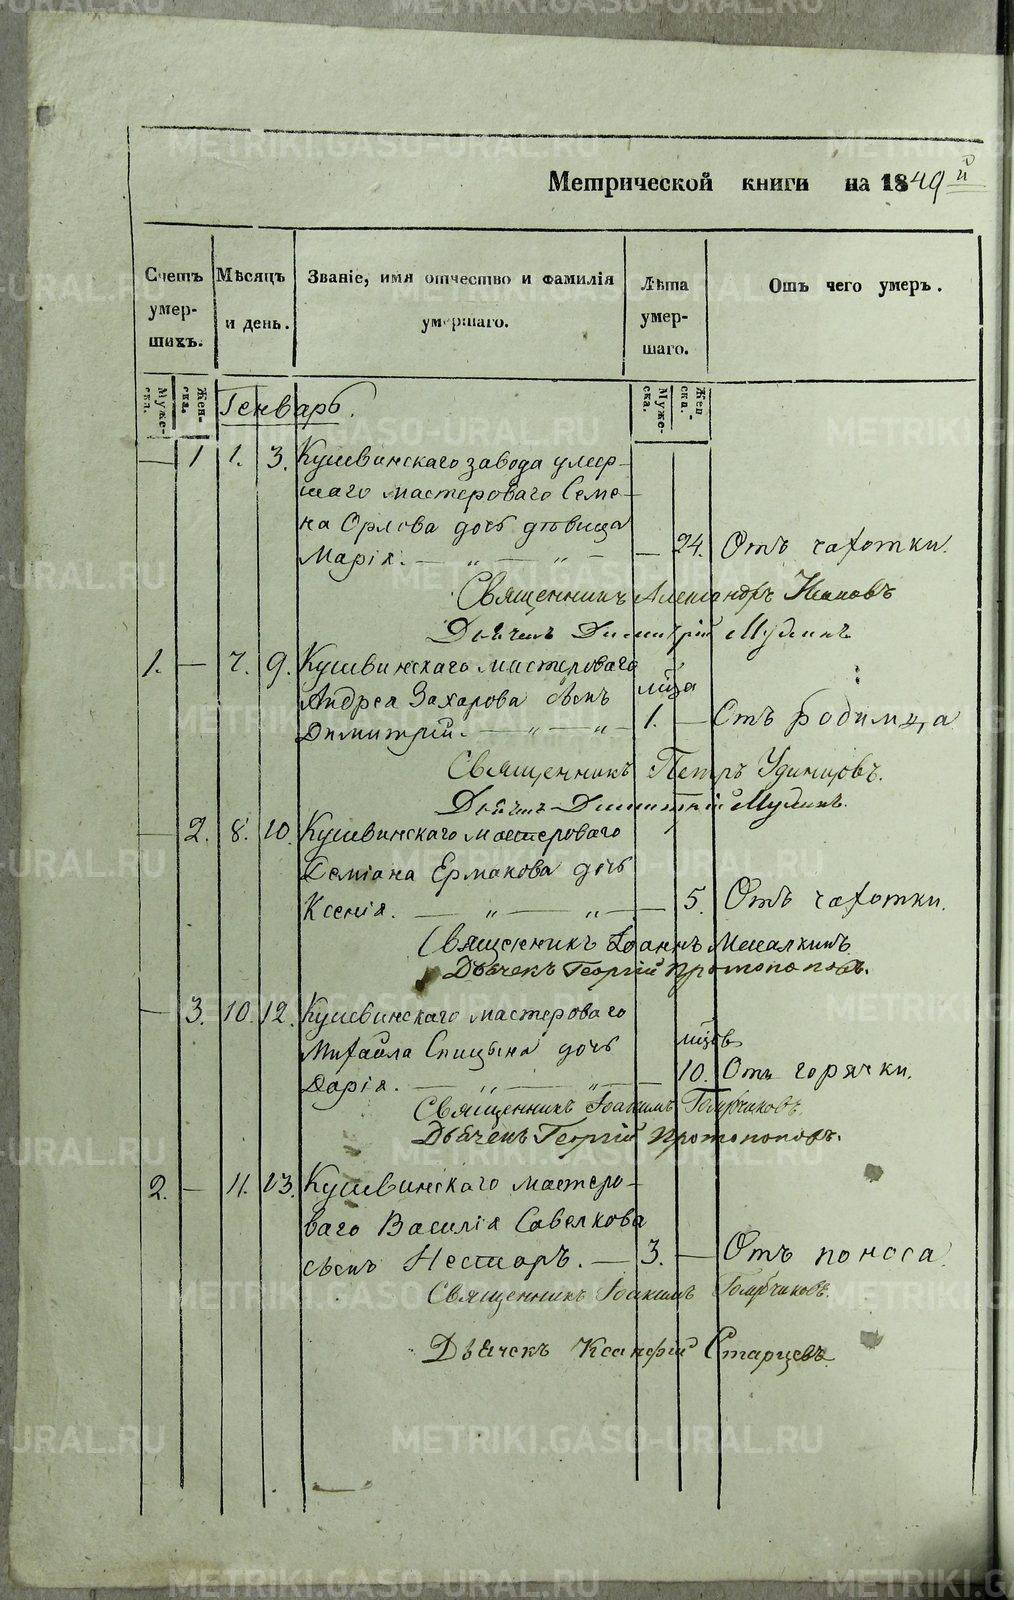 Метрической книги на 1849й
Счетъ умер-шихъ.
Мѣсяцъ и день.
Званіе, имя отчество и фамилія умершаго.
Лѣта умер-шаго.
Отъ чего умеръ.
Муже-ска.
Жен-ска.
Муже-ска.
Жен-ска.
Генварь.
— 1 1. 3. Кушвинскаго завода умер-
шаго мастероваго Семе-
на Орлова дочь дѣвица
Марія. — „ — „ — — 24. Отъ чахотки.
Священникъ Александръ
Дьячекъ Димитрій
1. — 7. 9. Кушвинскаго мастероваго
Андрея Захарова сынъ
Димитрій. — „ — „ — 1. — Отъ родимца
Священникъ Петръ Удинцовъ.
Дьячекъ Димитрій
— 2. 8. 10. Кушвинскаго мастероваго
Деміана Ермакова дочь
Ксенія. — „ — „ — 5. Отъ чахотки.
Священникъ Іоаннъ
Дьячекъ Георгій Протопоповъ.
— 3. 10. 12. Кушвинскаго мастероваго
Михаила Спицына дочь
Дарія. — „ — „ — 10. Отъ горячки.
Священникъ Іоакимъ
Дьячекъ Георгій Протопоповъ.
2. — 11. 13. Кушвинскаго мастеро-
ваго Василія Савелкова
сынъ Несторъ. — 3. — Отъ поноса
Священникъ Іоакимъ
Дьячекъ Ксанфій Старцевъ.
METRIKI.GASO-URAL.RU